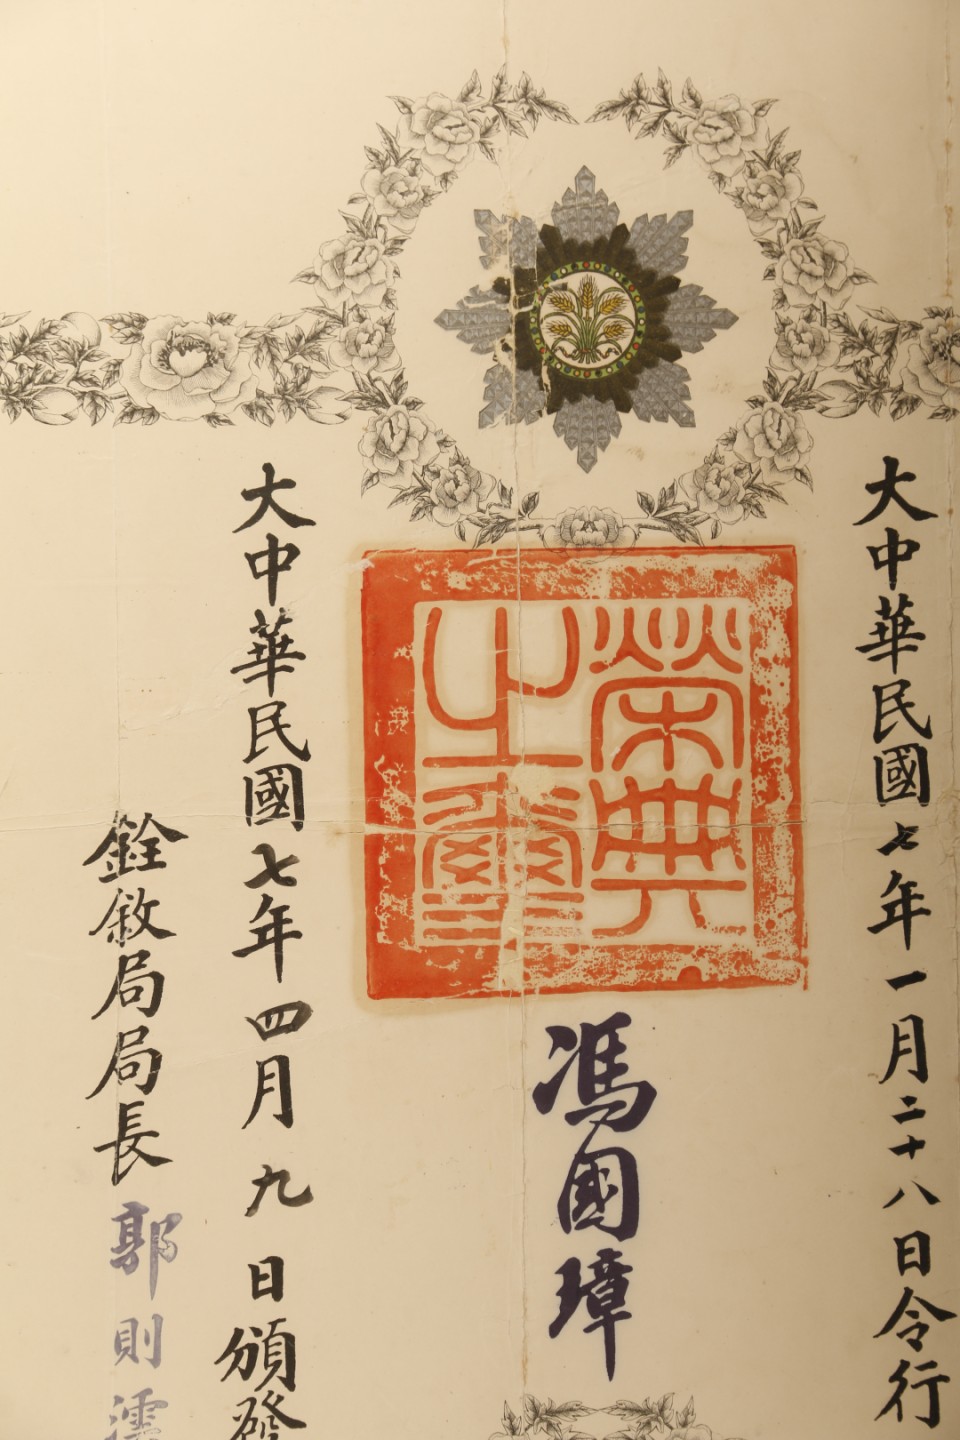 大中華民國七年一月二十八日令行
榮典之璽
馮國璋
大中華民國七年四月九日頒發
銓敘局局長郭則澐